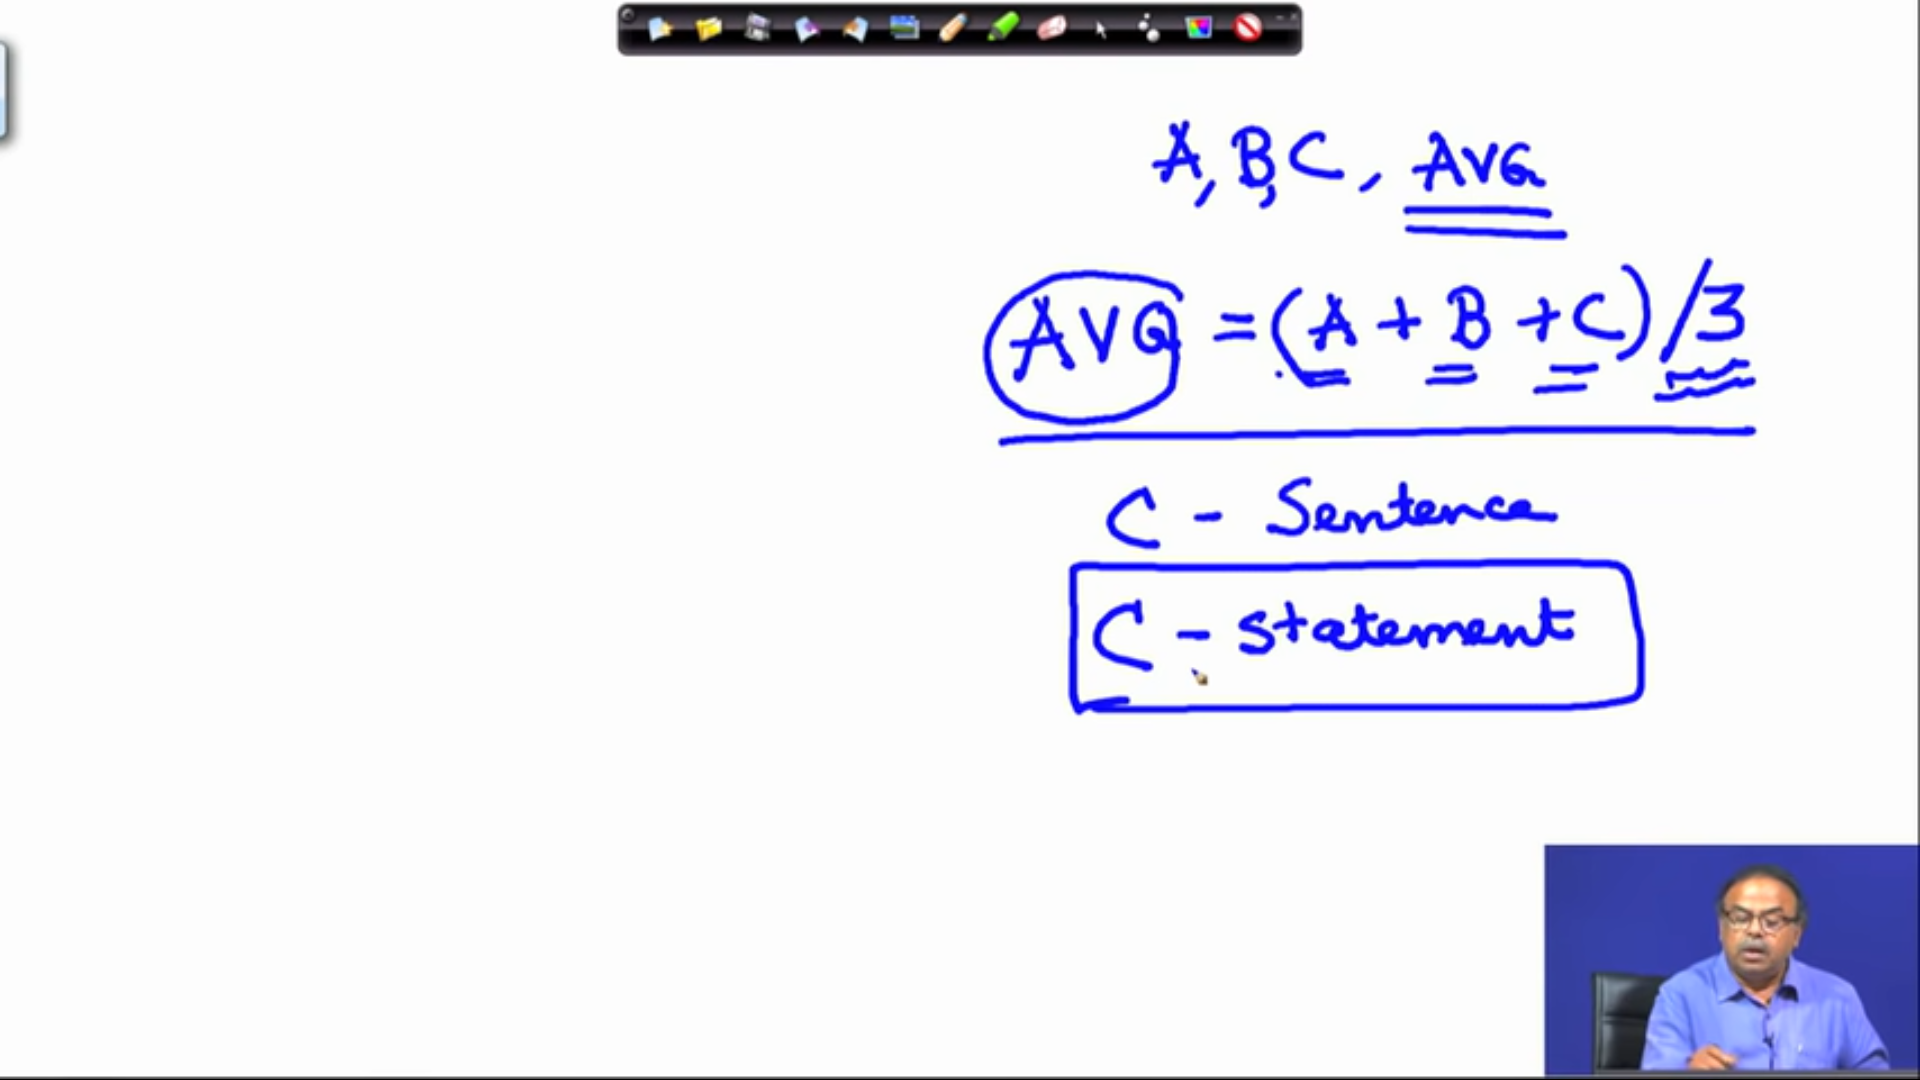 A, B, C, AVG
AVG = (A + B + C) / 3
C - Sentence
C - statement